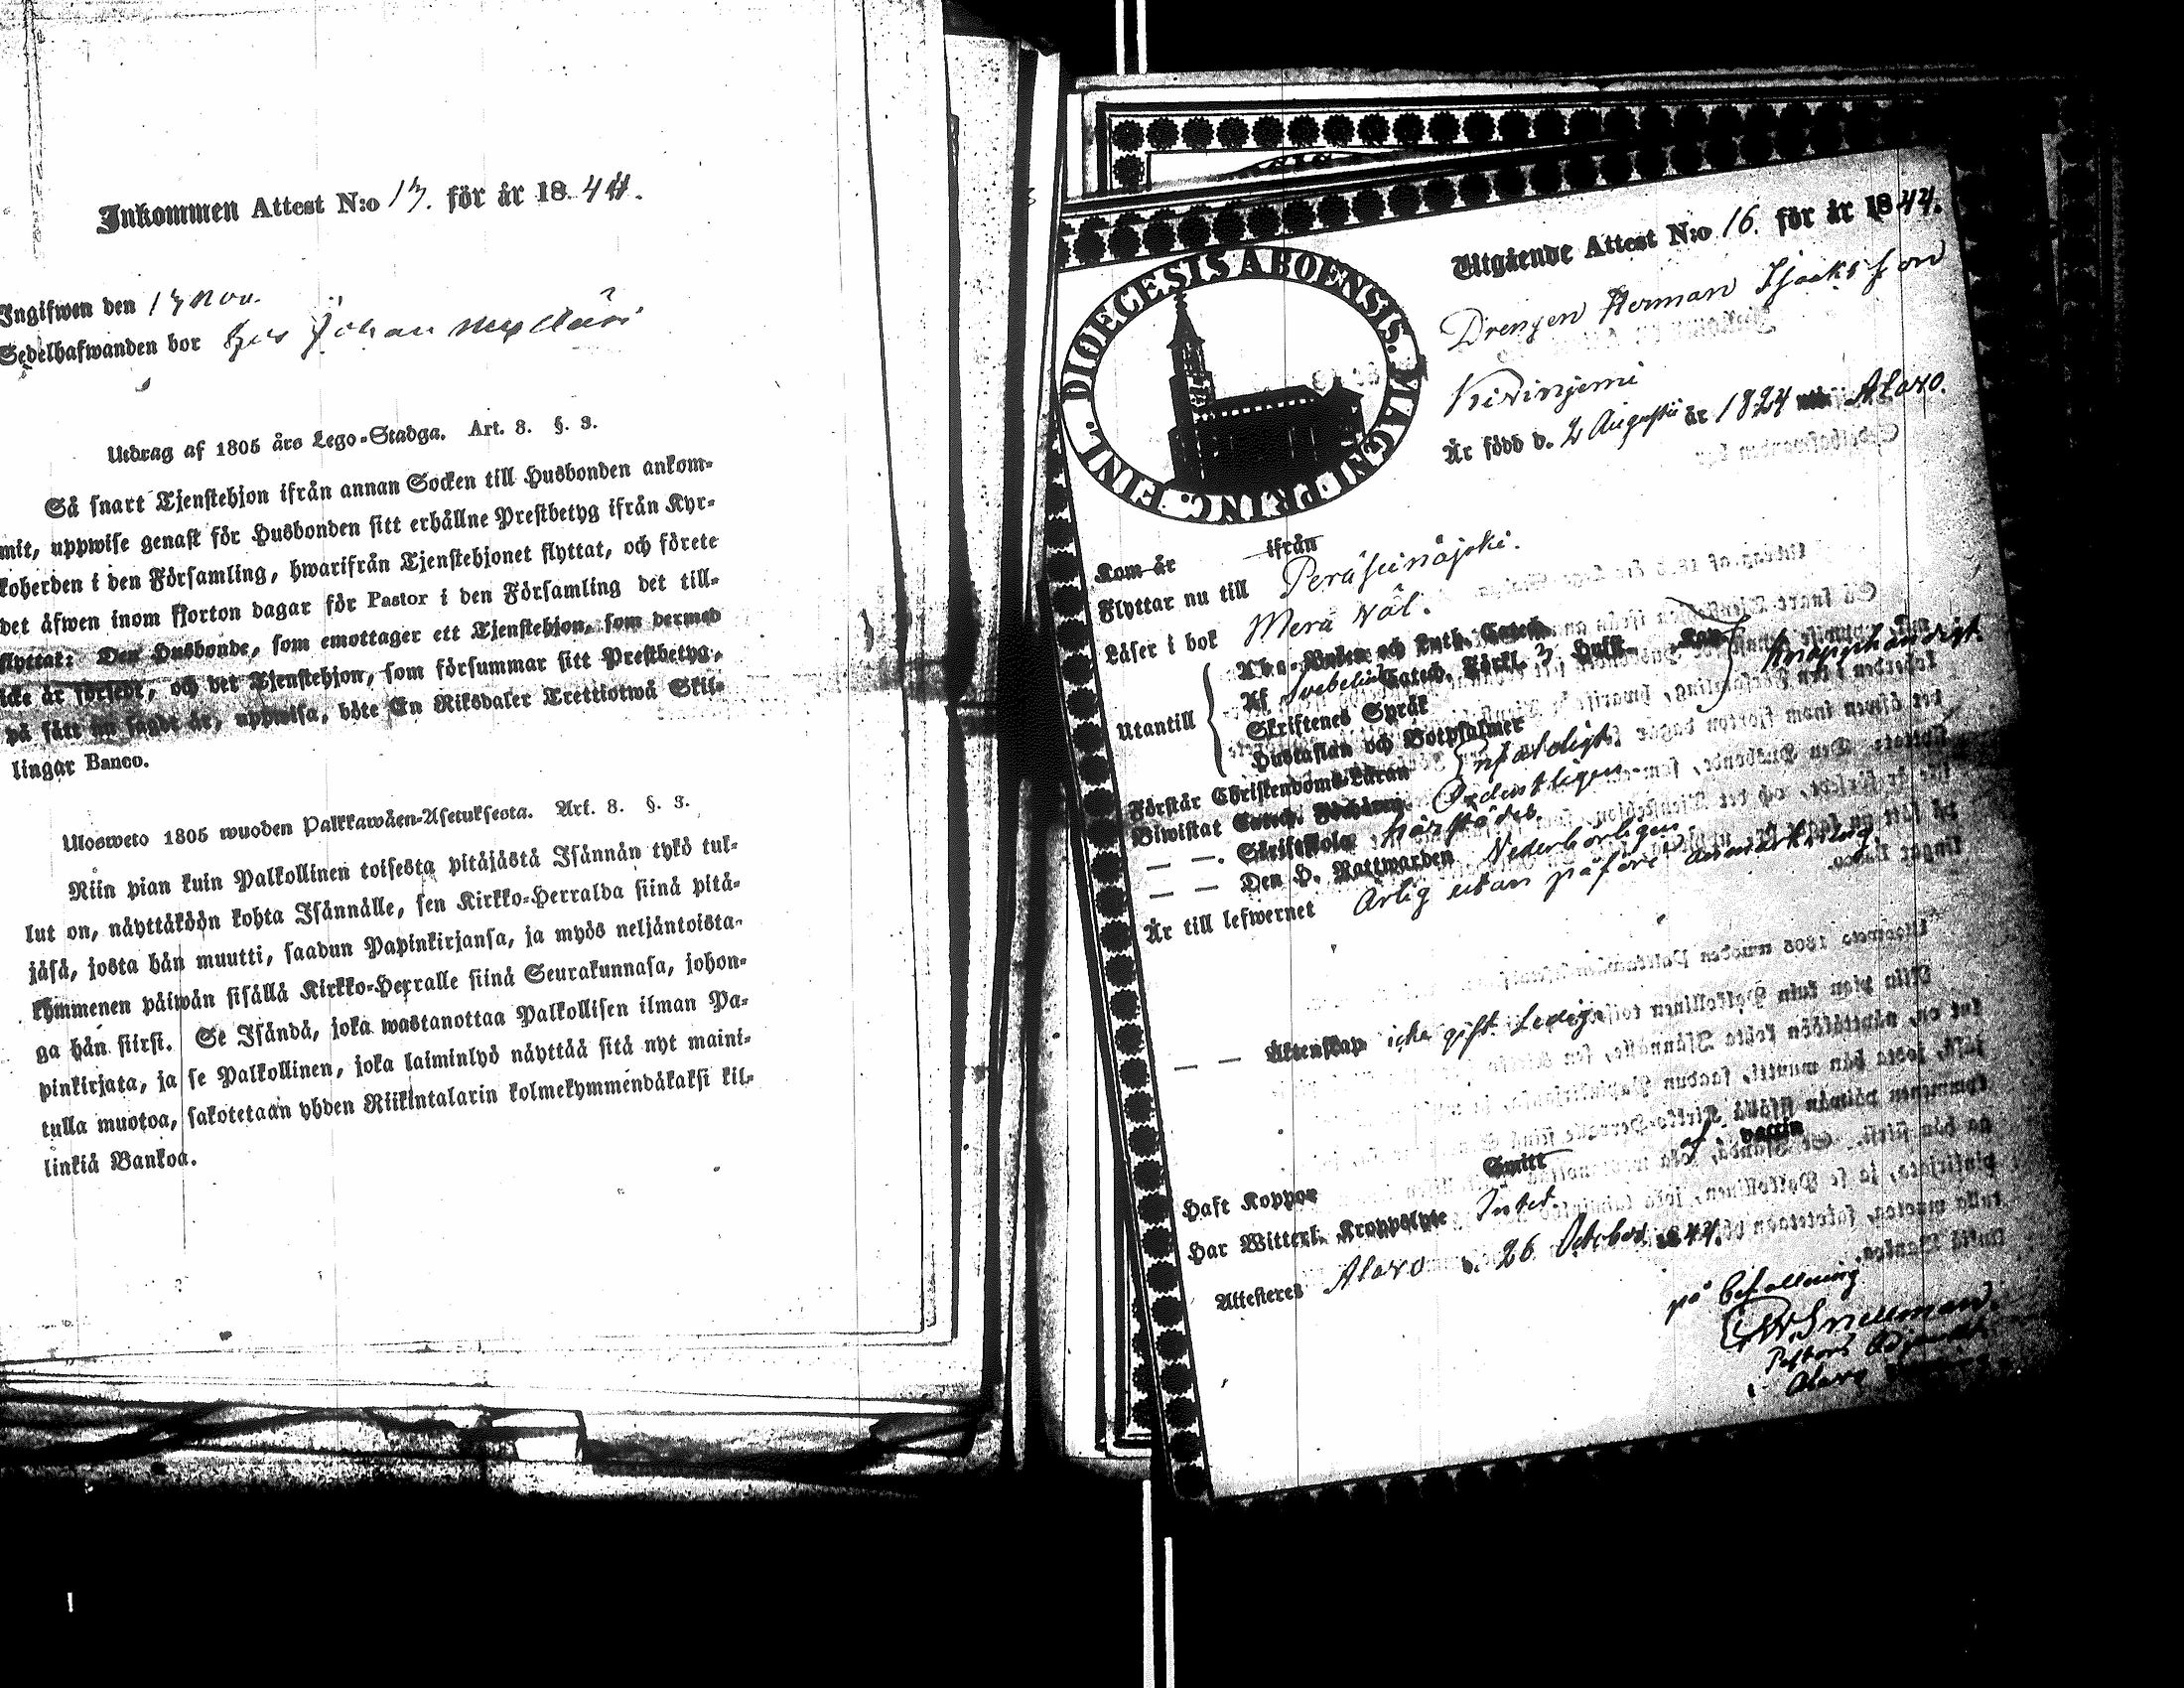 Inkommen Attest N:o 17. för år 1844.
Ingifwen den 17 Nov.
Sedelhafwanden bor hos Johan
Utdrag af 1805 års Lego-Stadga. Art. 8. §. 3.
Så snart Tjenstehjon ifrån annan Socken till Husbonden ankom-
mit, uppwise genast för Husbonden sitt erhållne Prestbetyg ifrån Kyr-
koherden i den Församling, hwarifrån Tjenstehjonet flyttat, och förete
det åfwen inom fjorton dagar för Pastor i den Församling det till-
flyttat: Den Husbonde, som emottager ett Tjenstehjon, som dermed
icke är försedt, och det Tjenstehjon, som försummar sitt Prestbetyg,
på sätt nu sagdt är, uppwisa, böte En Riksdaler Trettiotwå Skil-
lingar Banco.
Ulosweto 1805 wuoden Palkkawäen-Asetuksesta. Art. 8. §. 3.
Niin pian kuin Palkollinen toisesta pitäjästä Isännän tykö tul-
lut on, näyttäköön kohta Isännälle, sen Kirkko-Herralda siinä pitä-
jäsä, josta hän muutti, saadun Papinkirjansa, ja myös neljäntoista-
kymmenen päiwän sisällä Kirkko-Herralle siinä Seurakunnasa, johon-
ga hän siirsi. Se Isändä, joka wastanottaa Palkollisen ilman Pa-
pinkirjata, ja se Palkollinen, joka laiminlyö näyttää sitä nyt maini-
tulla muotoa, sakotetaan yhden Riikintalarin kolmekymmendäkaksi kil-
linkiä Bankoa.
DIOECESIS ABOENSIS. MAGNI PRINC. FINL.
Utgående Attest N:o 16. för år 1844.
Drengen Herman Isaksson
Kivinjemi
Är född d. 2 Augusti år 1824 uti Alavo.
Kom år ifrån
Flyttar nu till Peräseinäjoki.
Läser i bok Mera väl.
Utantill
Aba-Boken och Luth. Catech.
Af Svebelii Catech. Förkl. 3 Hufst.
Skriftenes Språk
Hustaflan och Botpsalmer
Förstår Christendoms-Läran Enfaldigt
Biwistat Catech. Förhören Ordentligen
— — Skriftskola härstädes
— — Den H. Nattwarden Vederbörligen
Är till lefwernet Ärlig utan påförd anmärkning
— — Äktenskap icke gift. Ledig
Haft Koppor Smitt af vaccin
Har Witterl. Kroppslyte Intet
Attesteres Alavo d. 26 October 1844.
på befallning
Snellman.
Pastors Adjunct
Alavo